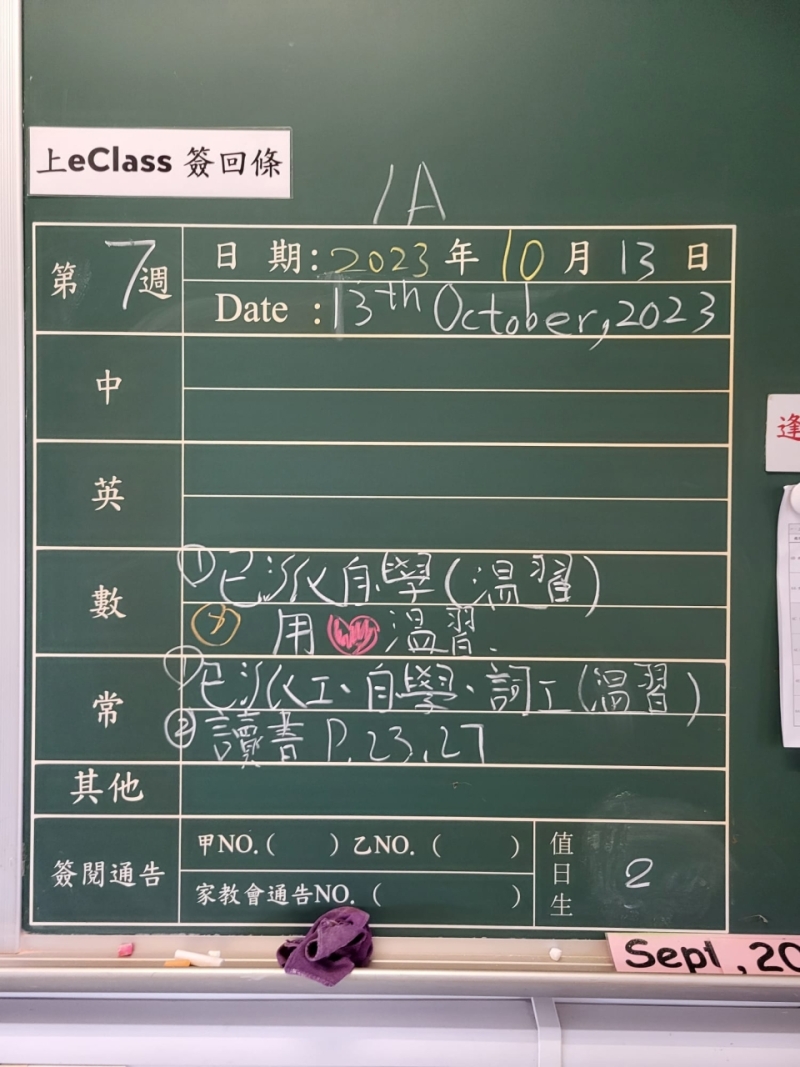 上eClass 簽回條
1A
第 7 週
日 期: 2023 年 10 月 13 日
Date : 13th October, 2023
中
英
數
① 已派自學(溫習)
用 溫習.
常
① 已派工、自學、詞工(溫習)
② 讀書 P.23,27
其他
簽閱通告
甲NO.( ) 乙NO. ( )
家教會通告NO. ( )
值日生
2
逢
Sept , 20